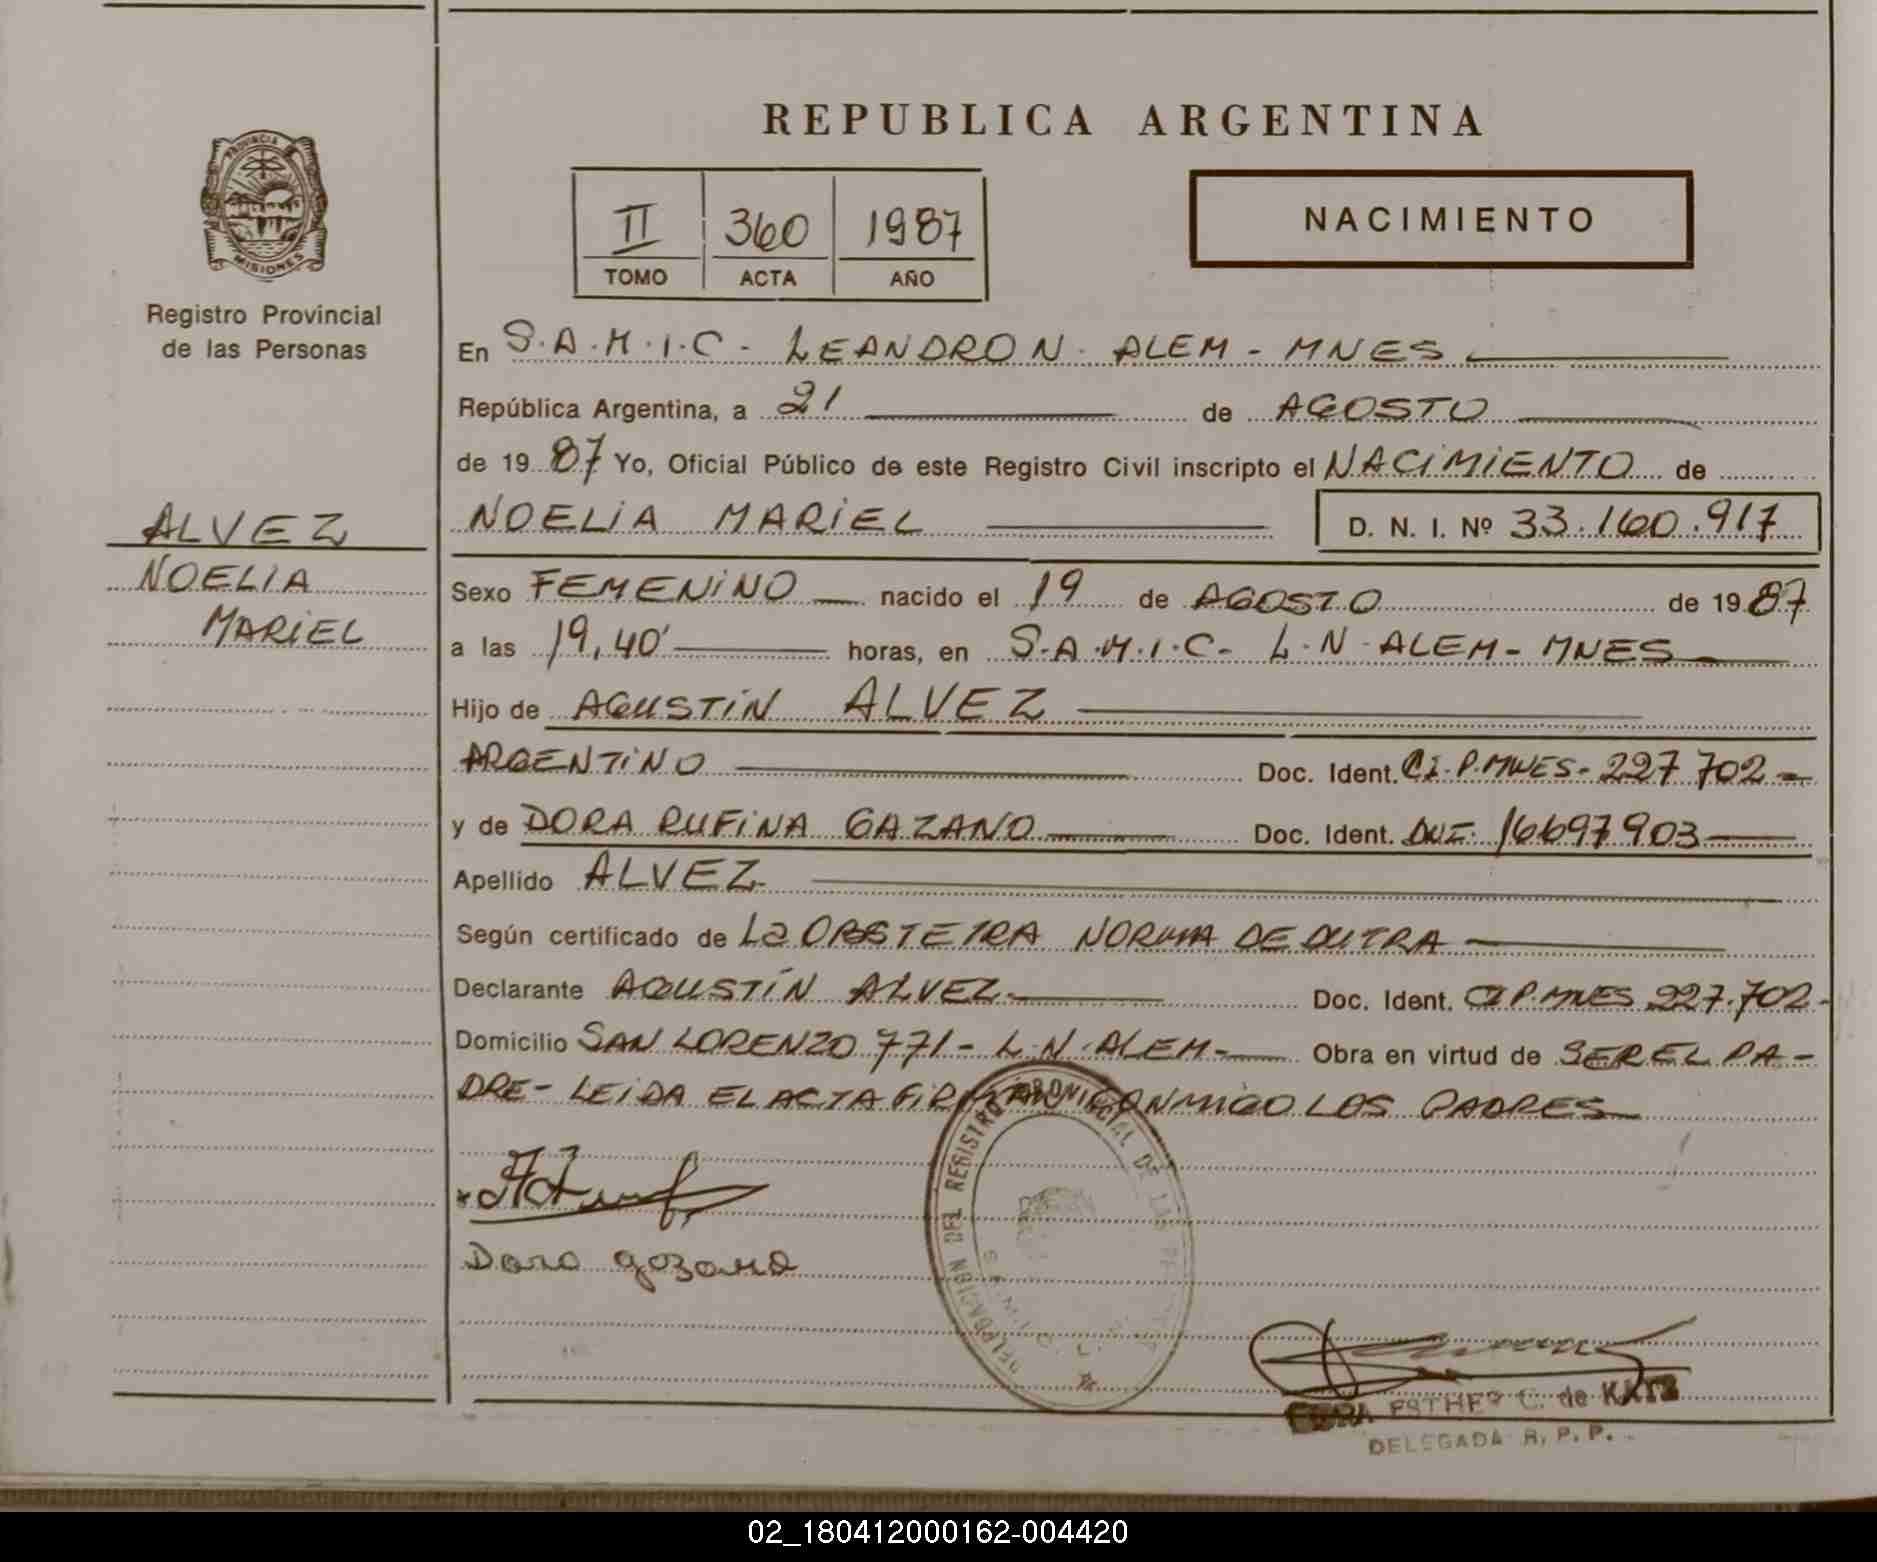 REPUBLICA ARGENTINA
PROVINCIA
MISIONES
Registro Provincial
de las Personas
II 360 1987
TOMO ACTA AÑO
NACIMIENTO
En S.A.M.I.C - LEANDRO N. ALEM - MNES
República Argentina, a 21 de AGOSTO
de 19 87 Yo, Oficial Público de este Registro Civil inscripto el NACIMIENTO de
NOELIA MARIEL D. N. I. Nº 33.160.917
ALVEZ
NOELIA
MARIEL
Sexo FEMENINO nacido el 19 de AGOSTO de 19 87
a las 19,40' horas, en S.A.M.I.C - L.N. ALEM - MNES
Hijo de AGUSTIN ALVEZ
ARGENTINO Doc. Ident. CI. P. MNES - 227 702 -
y de DORA RUFINA GAZANO Doc. Ident. DNI. 16697903
Apellido ALVEZ
Según certificado de La OBSTETRA NORMA DE DUTRA
Declarante AGUSTÍN ALVEZ Doc. Ident. CI P. MNES 227.702 -
Domicilio SAN LORENZO 771 - L.N. ALEM - Obra en virtud de SER EL PA -
DRE - LEIDA EL ACTA FIRMAN CONMIGO LOS PADRES
DELEGACION DEL REGISTRO PROVINCIAL DE LAS
Dora gozano
ESTHER C. de KATZ
DELEGADA R. P. P.
02_180412000162-004420